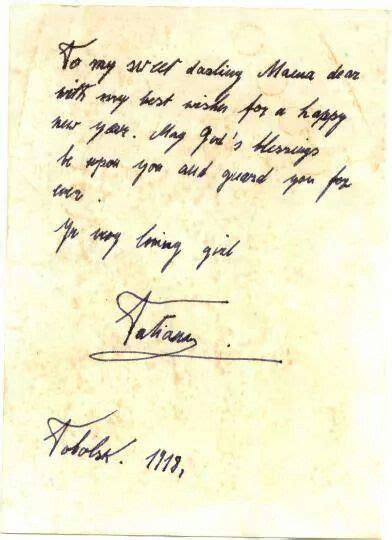 To my sweet darling Mama dear
with my best wishes for a happy
new year. May God's blessings
be upon you and guard you for
ever.
Yr very loving girl
Tatiana.
Tobolsk. 1918.